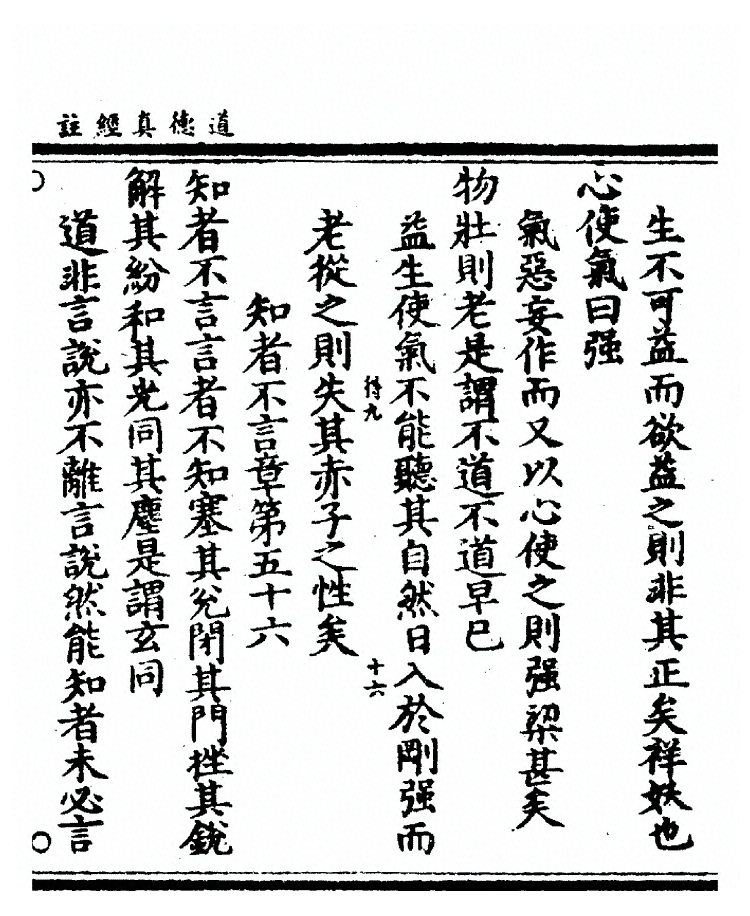 道德真經註
生不可益而欲益之則非其正矣祥妖也
心使氣曰强
氣惡妄作而又以心使之則强梁甚矣
物壯則老是謂不道不道早已
益生使氣不能聽其自然日入於剛强而
待九
十六
老從之則失其赤子之性矣
知者不言章第五十六
知者不言言者不知塞其兊閉其門挫其銳
解其紛和其光同其塵是謂玄同
道非言說亦不離言說然能知者未必言